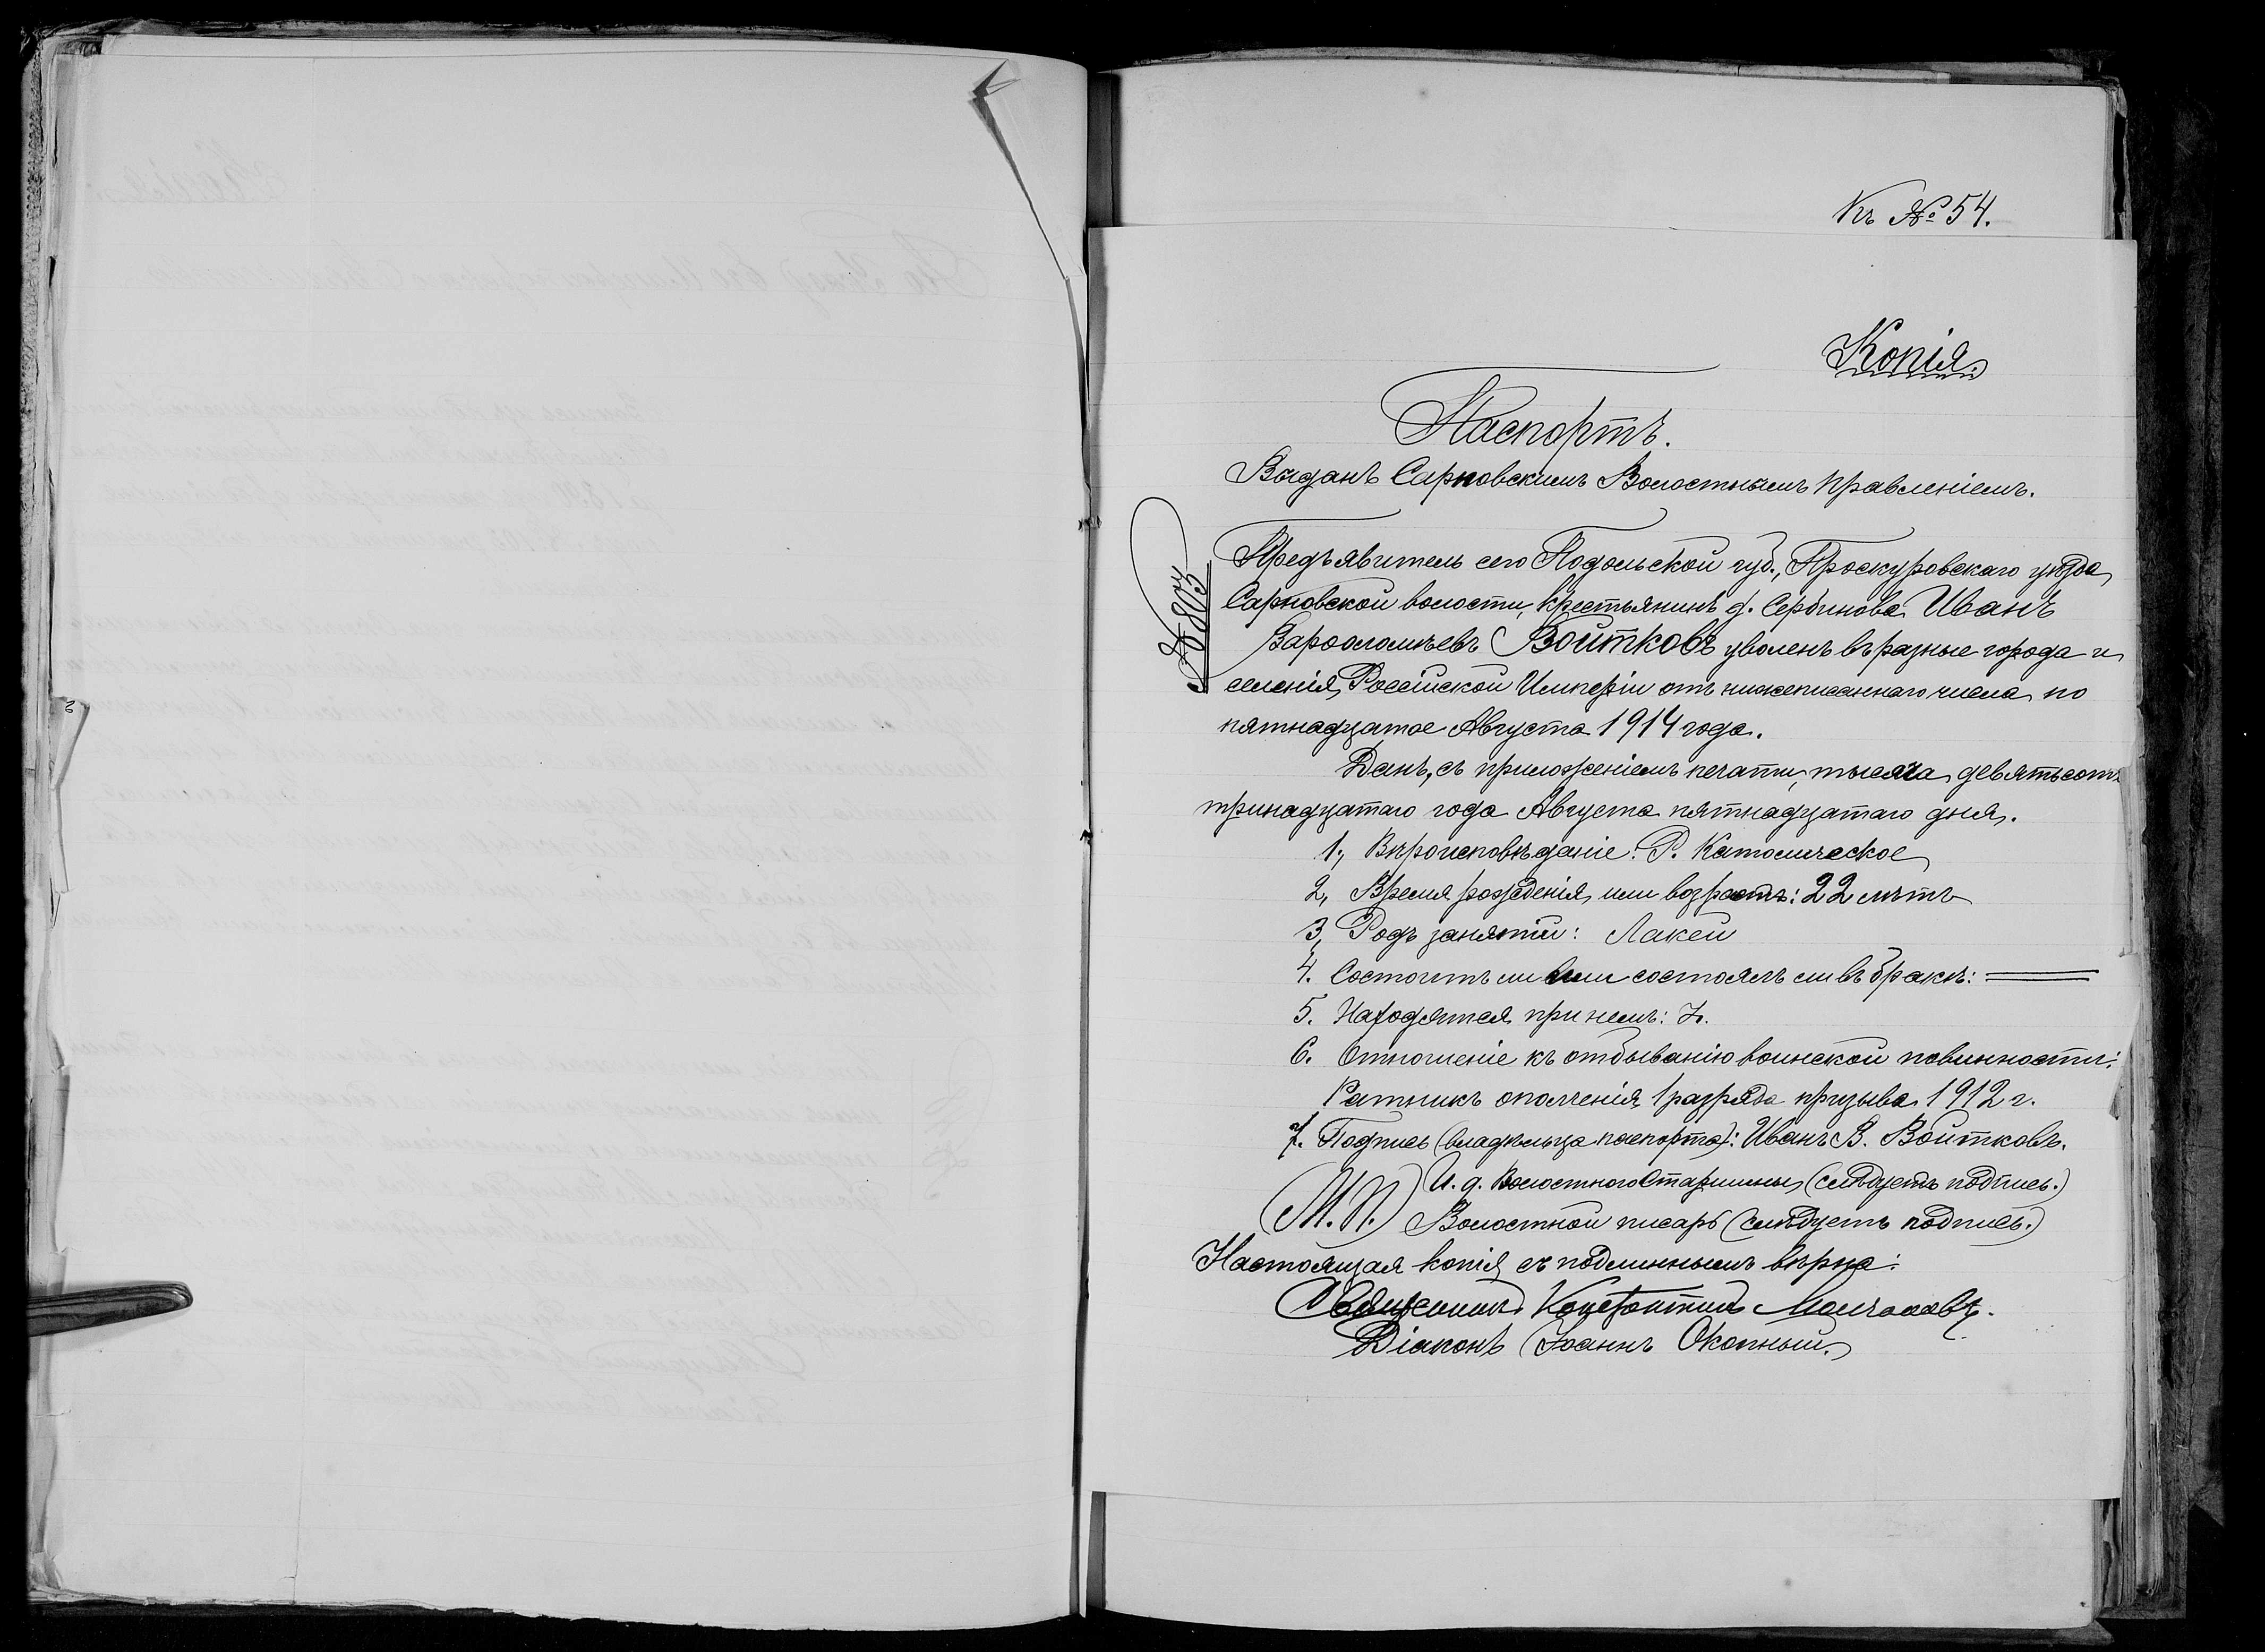 Къ № 54.
Копія.
Паспортъ.
Выданъ Сарновскимъ Волостнымъ Правленіемъ.
№ 803
Предъявитель сего Подольской губ., Проскуровскаго уѣзда,
Сарновской волости, крестьянинъ д. Сербинова Иванъ
Варѳоломѣевъ Войтковъ уволенъ въ разные города и
селенія Россійской Имперіи отъ нижеписаннаго числа по
пятнадцатое Августа 1914 года.
Данъ, съ приложеніемъ печати, тысяча девятьсотъ
тринадцатаго года Августа пятнадцатаго дня.
1, Вѣроисповѣданіе: Р. Католическое
2, Время рожденія или возрастъ: 22 лѣтъ
3, Родъ занятій: Лакей
4. Состоитъ ли или состоялъ ли въ бракѣ: ══
5. Находятся при немъ:
6. Отношеніе къ отбыванію воинской повинности:
Ратникъ ополченія 1 разряда призыва 1912 г.
7. Подпись (владѣльца паспорта): Иванъ В. Войтковъ.
И. д. Волостного Старшины (слѣдуетъ подпись.)
(М. П.) Волостной писарь (слѣдуетъ подпись.)
Настоящая копія съ подлиннымъ вѣрна:
Священникъ Константинъ
Діаконъ Іоаннъ Окопный.